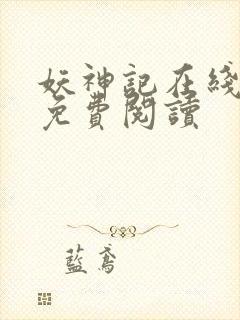 妖神記在綫
免費閱讀
藍鳶